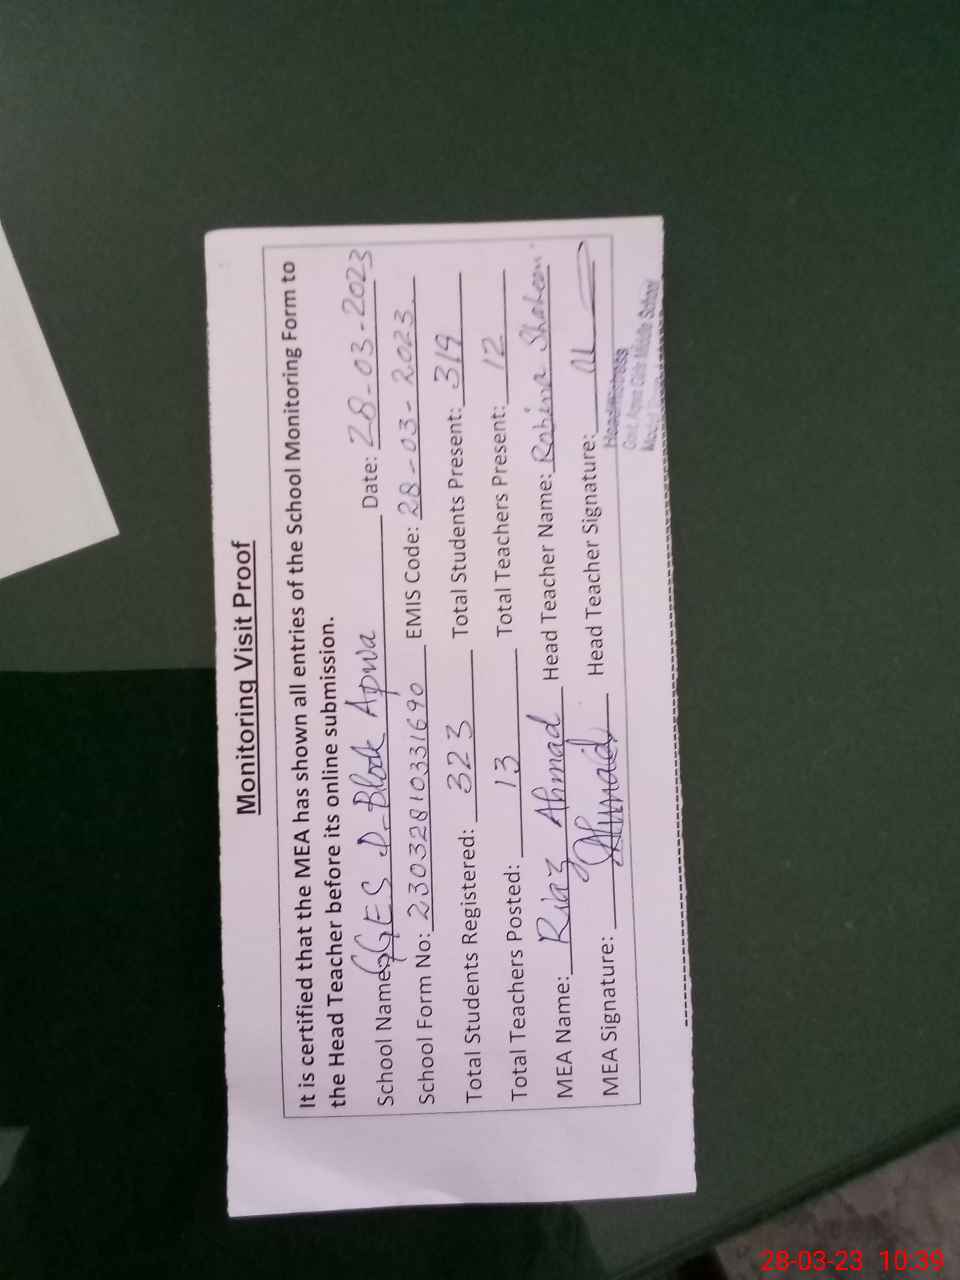 Monitoring Visit Proof
It is certified that the MEA has shown all entries of the School Monitoring Form to
the Head Teacher before its online submission.
School Name: GGES D-Block Apwa Date: 28-03-2023
School Form No: 23032810331690 EMIS Code: 28-03-2023
Total Students Registered: 323 Total Students Present: 319
Total Teachers Posted: 13 Total Teachers Present: 12
MEA Name: Riaz Ahmad Head Teacher Name: Robina Shaheen
MEA Signature: Ahmad Head Teacher Signature:
Headmistress
Govt. Apwa Girls Middle School
28-03-23 10:39